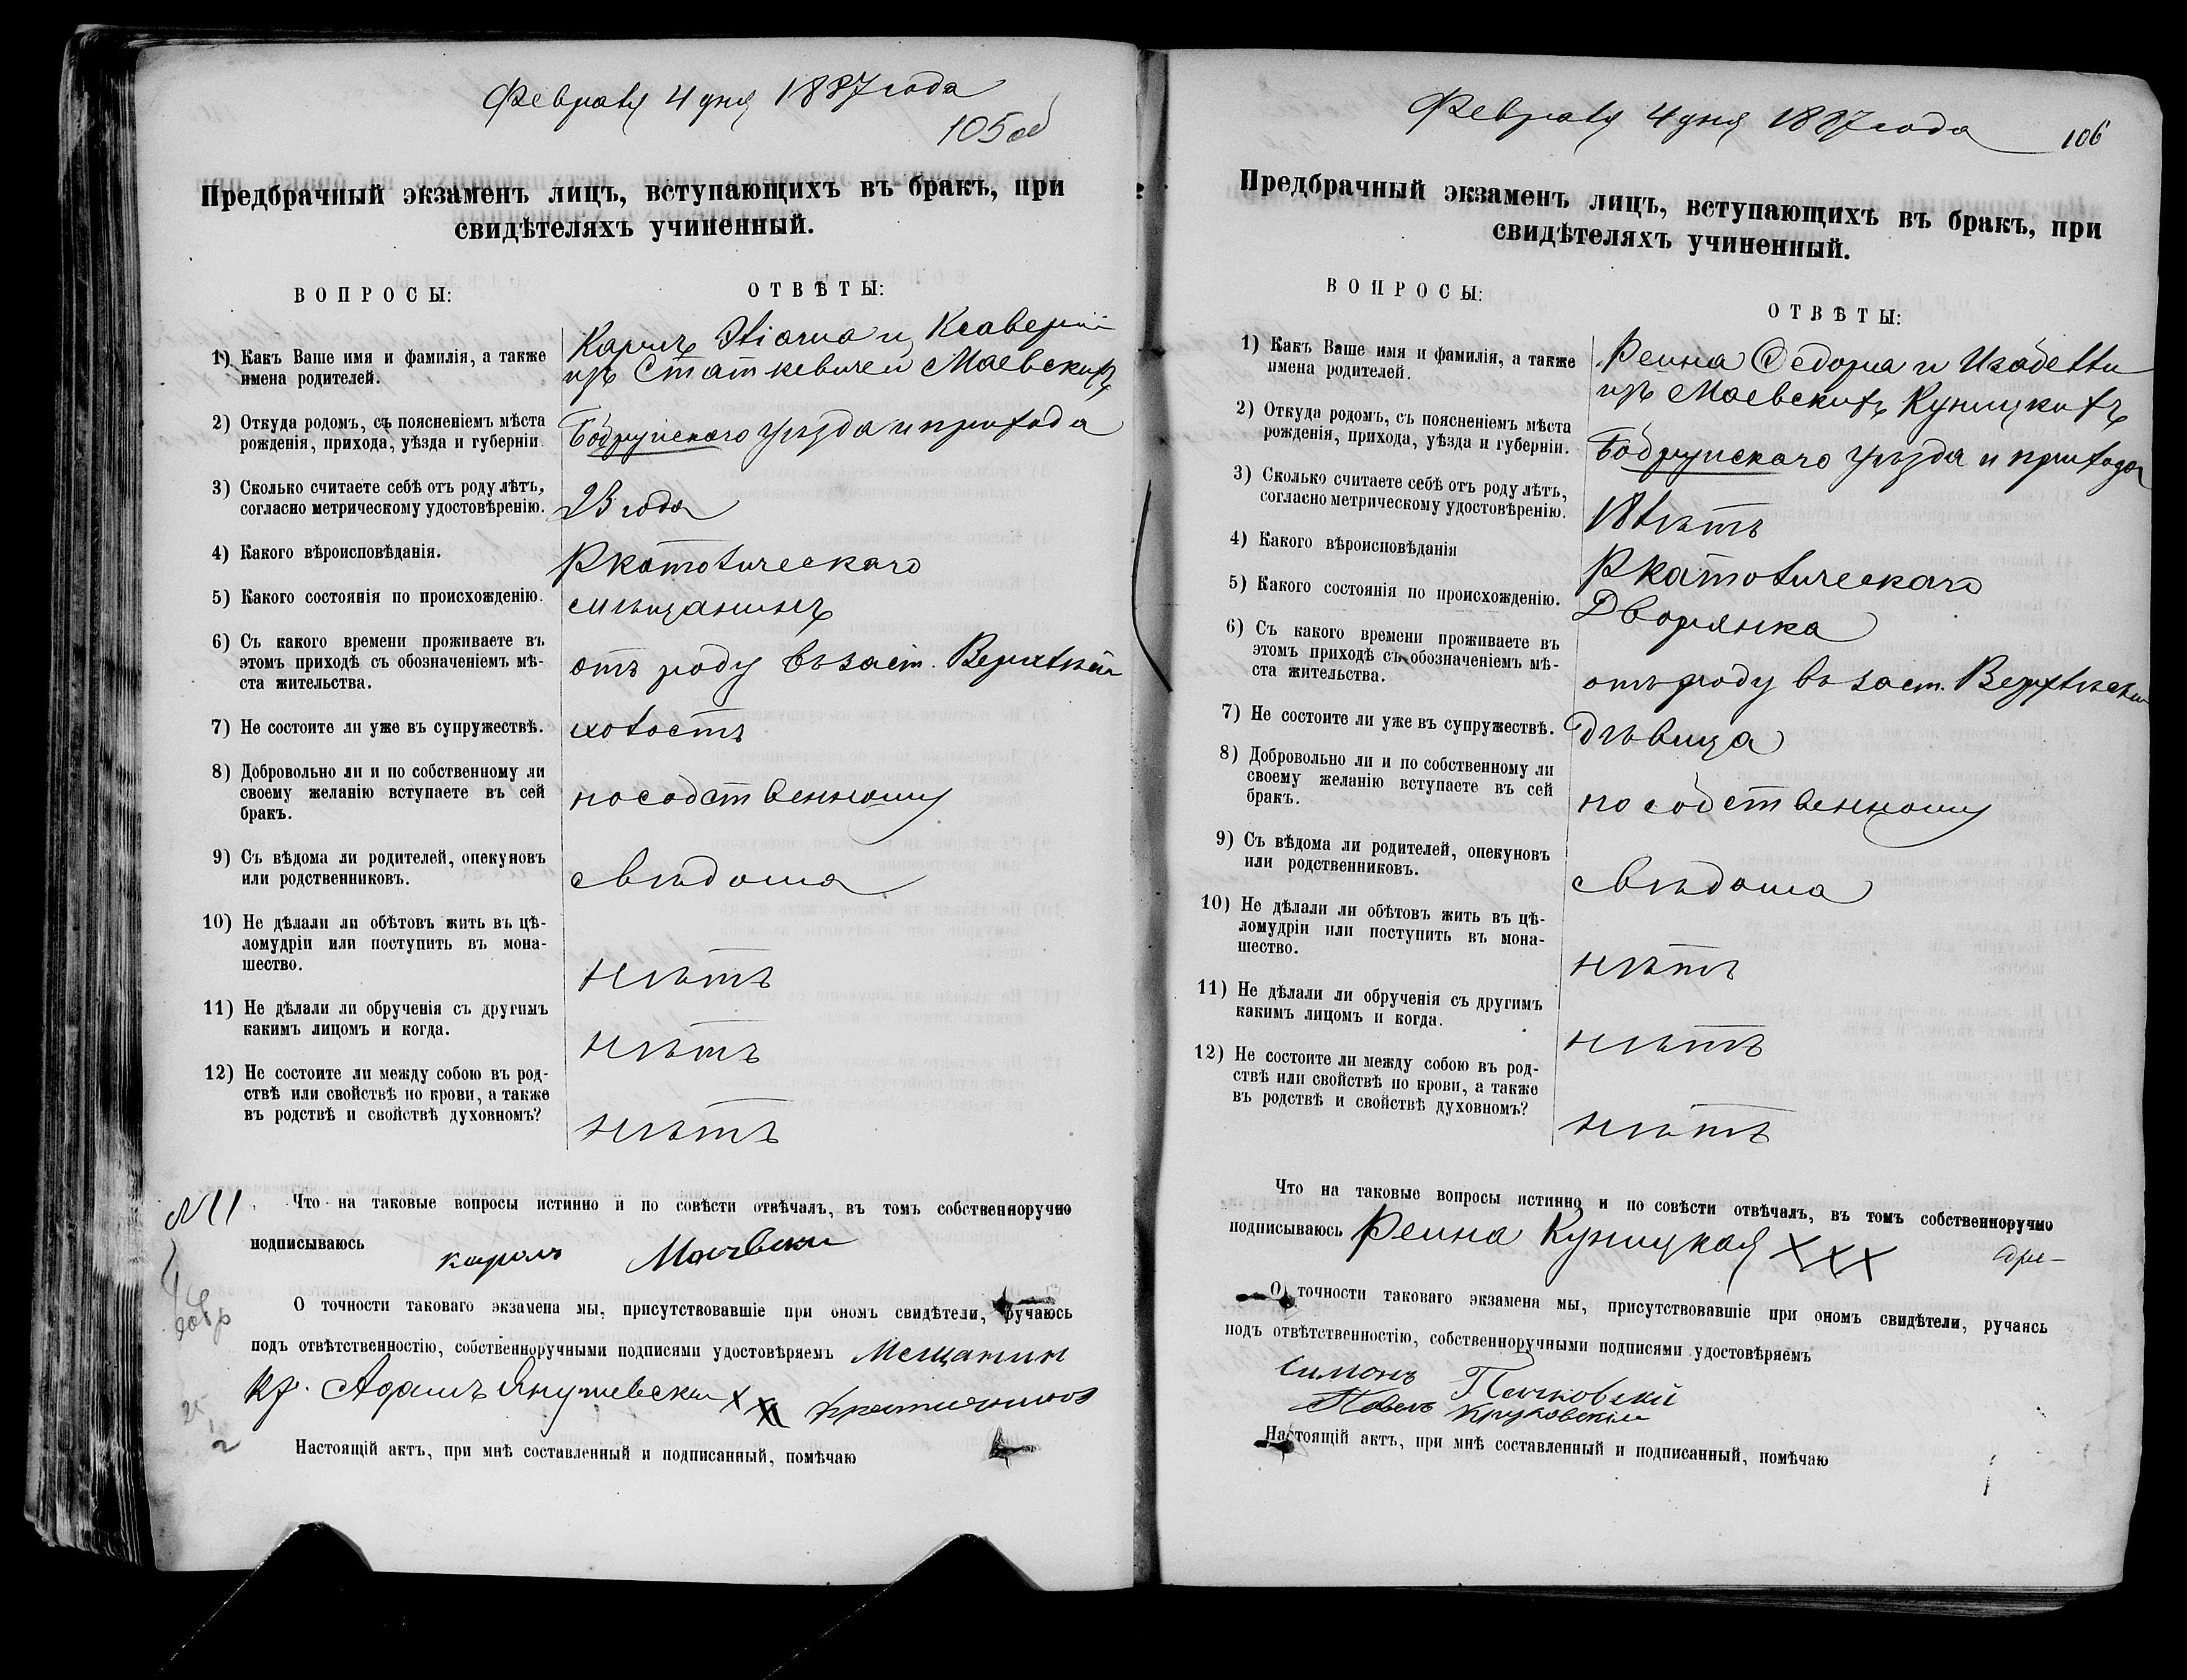 Февраля 4 дня 1887 года
105 об
Предбрачный экзаменъ лицъ, вступающихъ въ бракъ, при
свидѣтеляхъ учиненный.
ВОПРОСЫ:
ОТВѢТЫ:
1) Какъ Ваше имя и фамилія, а также
имена родителей.
Кароль и Ксаверіи
изъ Статкевичей Маевскихъ
2) Откуда родомъ, съ поясненіемъ мѣста
рожденія, прихода, уѣзда и губерніи.
Бобруйскаго уѣзда и прихода
3) Сколько считаете себѣ отъ роду лѣтъ,
согласно метрическому удостовѣренію.
23 года
4) Какого вѣроисповѣданія.
Ркатолическаго
5) Какого состоянія по происхожденію.
мѣщанинъ
6) Съ какого времени проживаете въ
этомъ приходѣ съ обозначеніемъ мѣ-
ста жительства.
отъ роду въ заст.
7) Не состоите ли уже въ супружествѣ.
холостъ
8) Добровольно ли и по собственному ли
своему желанію вступаете въ сей
бракъ.
по собственному
9) Съ вѣдома ли родителей, опекуновъ
или родственниковъ.
съ вѣдома
10) Не дѣлали ли обѣтовъ жить въ цѣ-
ломудріи или поступить въ мона-
шество.
нѣтъ
11) Не дѣлали ли обрученія съ другимъ
какимъ лицомъ и когда.
нѣтъ
12) Не состоите ли между собою въ род-
ствѣ или свойствѣ по крови, а также
въ родствѣ и свойствѣ духовномъ?
нѣтъ
N 11
Что на таковые вопросы истинно и по совѣсти отвѣчалъ, въ томъ собственноручно
подписываюсь кароль Маевски
О точности таковаго экзамена мы, присутствовавшіе при ономъ свидѣтели, ручаюсь
подъ отвѣтственностію, собственноручными подписями удостовѣряемъ Мещанин
кр. Адамъ Янушевски X X
Настоящій актъ, при мнѣ составленный и подписанный, помѣчаю
Февраля 4 дня 1887 года
106
Предбрачный экзаменъ лицъ, вступающихъ въ бракъ, при
свидѣтеляхъ учиненный.
ВОПРОСЫ:
ОТВѢТЫ:
1) Какъ Ваше имя и фамилія, а также
имена родителей.
Реина Федора и Изабелли
изъ Маевскихъ Куницкихъ
2) Откуда родомъ, съ поясненіемъ мѣста
рожденія, прихода, уѣзда и губерніи.
Бобруйскаго уѣзда и прихода
3) Сколько считаете себѣ отъ роду лѣтъ,
согласно метрическому удостовѣренію.
18 лѣтъ
4) Какого вѣроисповѣданія
Ркатолическаго
5) Какого состоянія по происхожденію.
Дворянка
6) Съ какого времени проживаете въ
этомъ приходѣ съ обозначеніемъ мѣ-
ста жительства.
отъ роду въ заст.
7) Не состоите ли уже въ супружествѣ.
дѣвица
8) Добровольно ли и по собственному ли
своему желанію вступаете въ сей
бракъ.
по собственному
9) Съ вѣдома ли родителей, опекуновъ
или родственниковъ.
съ вѣдома
10) Не дѣлали ли обѣтовъ жить въ цѣ-
ломудріи или поступить въ мона-
шество.
нѣтъ
11) Не дѣлали ли обрученія съ другимъ
какимъ лицомъ и когда.
нѣтъ
12) Не состоите ли между собою въ род-
ствѣ или свойствѣ по крови, а также
въ родствѣ и свойствѣ духовномъ?
нѣтъ
Что на таковые вопросы истинно и по совѣсти отвѣчалъ, въ томъ собственноручно
подписываюсь Реина Куницкая XXX
О точности таковаго экзамена мы, присутствовавшіе при ономъ свидѣтели, ручаясь
подъ отвѣтственностію, собственноручными подписями удостовѣряемъ
Симонъ
Павелъ Круковскіи
Настоящій актъ, при мнѣ составленный и подписанный, помѣчаю